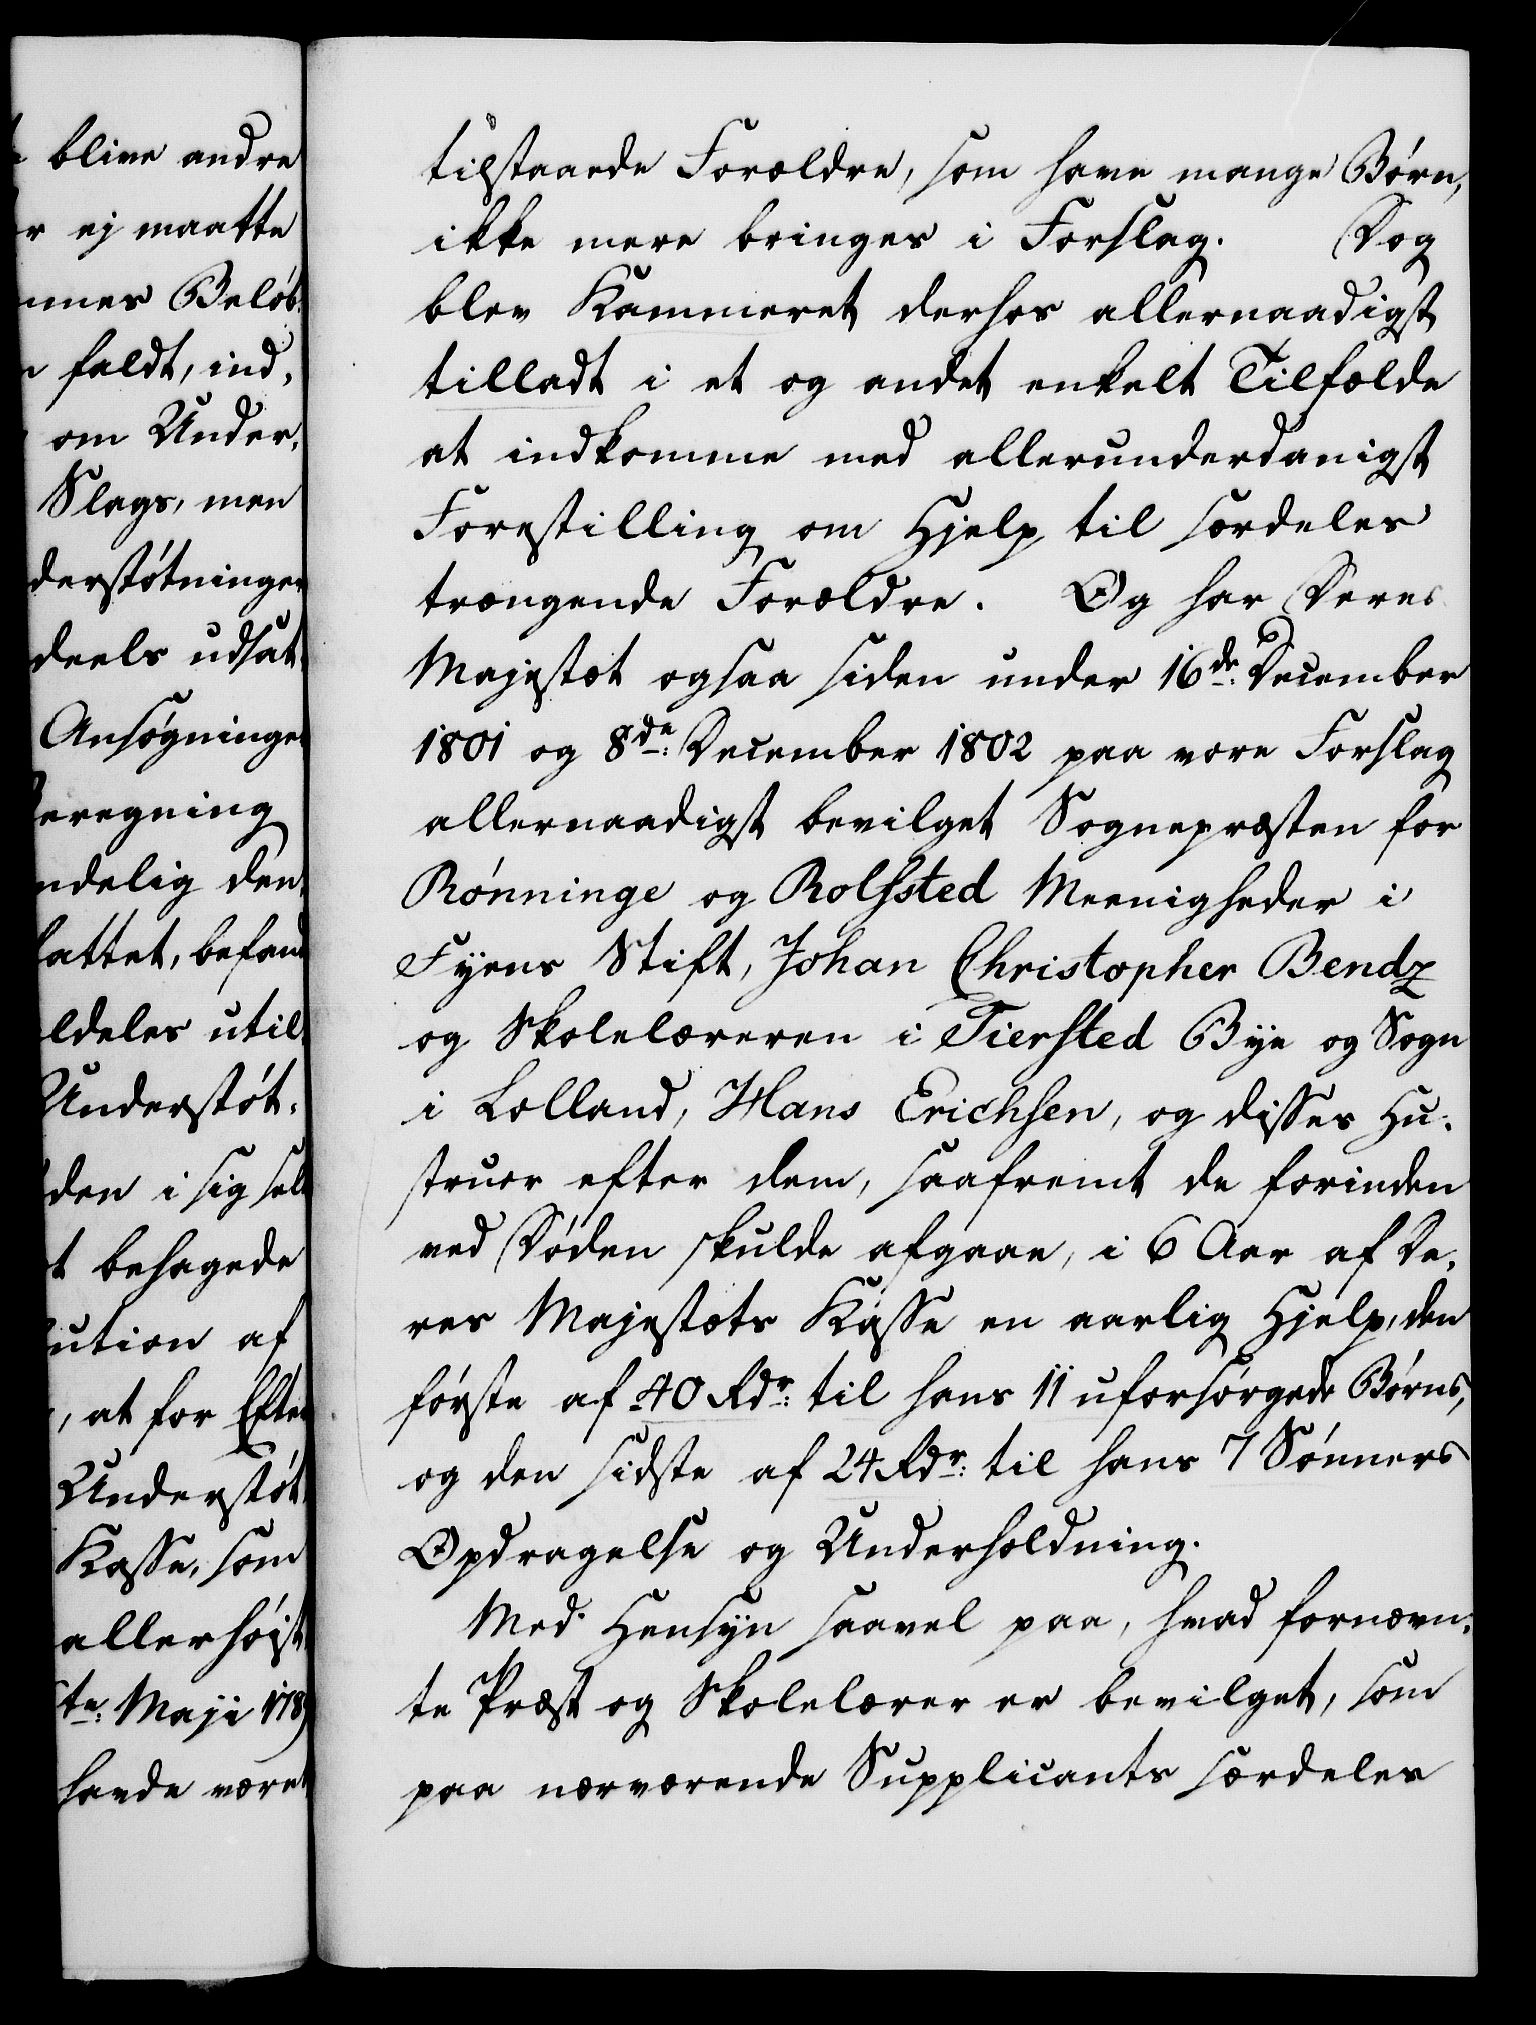 blive andre
r ej maatte
mmes Beløb
faldt, ind¬
om Under¬
Slags, men
derstøtninger
deels udsat
Ansøgninge
eregning
ndelig den
fattet, befand
ldeles util
Understøt¬
den i sig sel
t behagede
ution af
, at for Efter
Understøt
Kasse, som
allerhøist
te: Maji 1789
havde været
tilstaaede Forældre, som have mange Børn,
ikke mere bringes i Forslag. Dog
blev Kammeret derhos allernaadigst
tilladt i et og andet enkelt Tilfælde
at indkomme med allerunderdanigst
Forestilling om Hjelp til særdeles
trængende Forældre. Og har Deres
Majestæt ogsaa siden under 16de: December
1801 og 8de: December 1802 paa vore Forslag
allernaadigst bevilget Sognepræsten for
Rønninge og Rolfsted Meenigheder i
Fyens Stift, Johan Christopher Bendz
og Skolelæreren i Tiersted Bye og Sogn
i Lolland, Hans Erichsen, og disses Hu¬
struer efter dem, saafremt de forinden
ved Døden skulde afgaae, i 6 Aar af De¬
res Majestæts Kasse en aarlig Hjelp, den
første af 40 Rdr: til hans 11 uforsørgede Børns,
og den sidste af 24 Rdr: til hans 7 Sønners
Opdragelse og Underholdning.
Med Hensyn saavel paa, hvad fornævn¬
te Præst og Skolelærer er bevilget, som
paa nærværende Supplicants særdeles